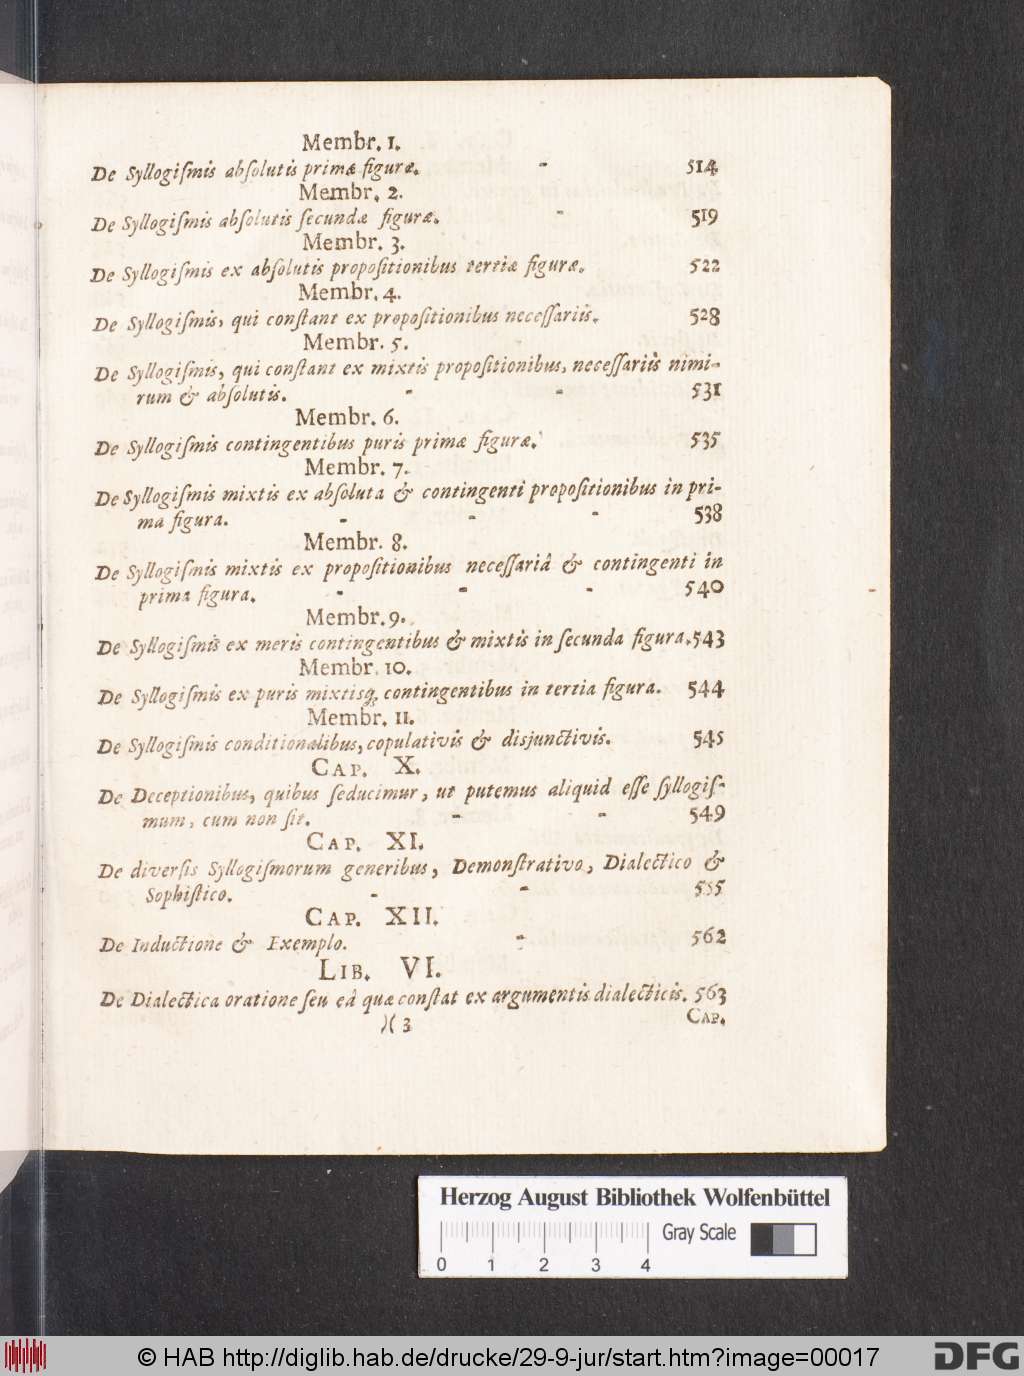 Membr. 1.
De Syllogiſmis abſolutis primæ figuræ. - 514
Membr. 2.
De Syllogiſmis abſolutis ſecundæ figuræ. - 519
Membr. 3.
De Syllogiſmis ex abſolutis propoſitionibus tertiæ figuræ. 522
Membr. 4.
De Syllogiſmis, qui conſtant ex propoſitionibus neceſſariis. 528
Membr. 5.
De Syllogiſmis, qui conſtant ex mixtis propoſitionibus, neceſſariis nimi-
rum & abſolutis. - - 531
Membr. 6.
De Syllogiſmis contingentibus puris primæ figuræ. 535
Membr. 7.
De Syllogiſmis mixtis ex abſoluta & contingenti propoſitionibus in pri-
ma figura. - - - 538
Membr. 8.
De Syllogiſmis mixtis ex propoſitionibus neceſſariâ & contingenti in
prima figura. - - - 540
Membr. 9.
De Syllogiſmis ex meris contingentibus & mixtis in ſecunda figura. 543
Membr. 10.
De Syllogiſmis ex puris mixtisq; contingentibus in tertia figura. 544
Membr. 11.
De Syllogiſmis conditionalibus, copulativis & disjunctivis. 545
CAP. X.
De Deceptionibus, quibus ſeducimur, ut putemus aliquid eſſe ſyllogiſ-
mum, cum non ſit. - - 549
CAP. XI.
De diverſis Syllogiſmorum generibus, Demonſtrativo, Dialectico &
Sophiſtico. - - 555
CAP. XII.
De Inductione & Exemplo. - 562
LIB. VI.
De Dialectica oratione ſeu eâ quæ conſtat ex argumentis dialecticis. 563
)( 3 CAP.
Herzog August Bibliothek Wolfenbüttel
Gray Scale
0 1 2 3 4
© HAB http://diglib.hab.de/drucke/29-9-jur/start.htm?image=00017
DFG